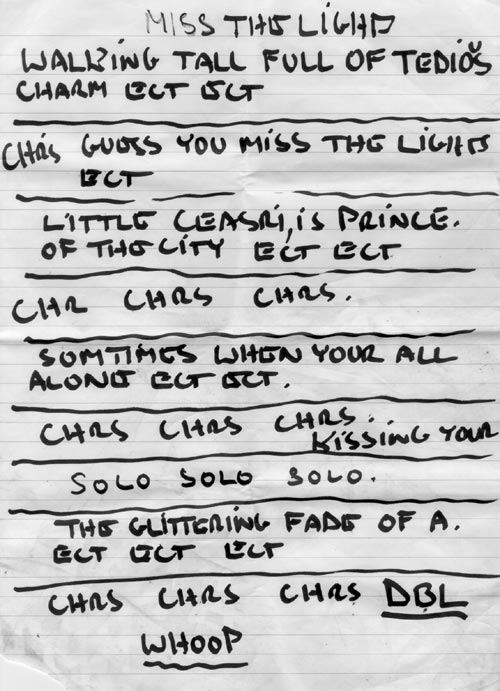 MISS THE LIGHT
WALKING TALL FULL OF TEDIOUS
CHARM ECT ECT
CHRS GUESS YOU MISS THE LIGHTS
ECT
LITTLE CEASR, IS PRINCE.
OF THE CITY ECT ECT
CHR CHRS CHRS.
SOMTIMES WHEN YOUR ALL
ALONE ECT ECT.
CHRS CHRS CHRS.
KISSING YOUR
SOLO SOLO SOLO.
THE GLITTERING FADE OF A.
ECT ECT ECT
CHRS CHRS CHRS DBL
WHOOP